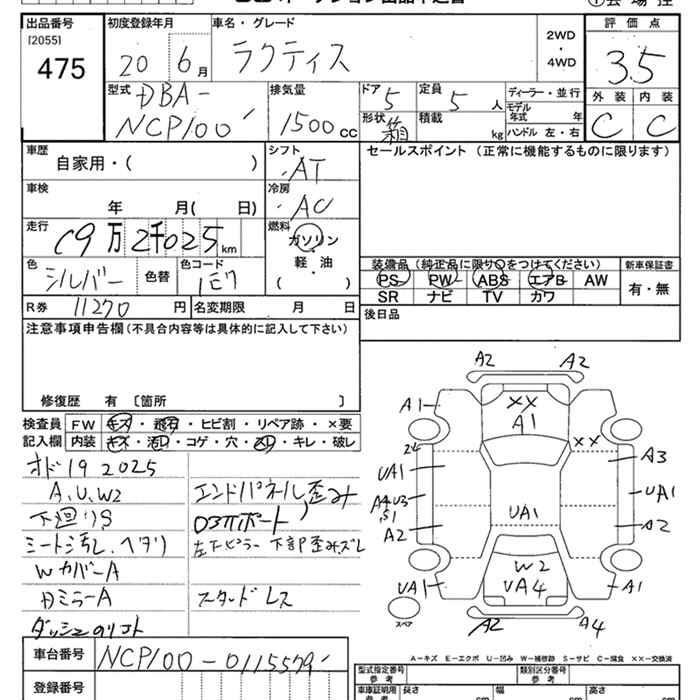 出品番号 初度登録年月 車名・グレード 2WD・4WD 評価点
[2055]
475 20 6月 ラクティス 3.5
型式 排気量 ドア 定員 ディーラー・並行 外装 内装
DBA-
NCP100 1500cc 5 5人 モデル年式 年 C C
形状 箱 積載 kg ハンドル 左・右
車歴 シフト セールスポイント (正常に機能するものに限ります)
自家用・( ) AT
車検 冷房
年 月( 日) AC
走行 燃料
19万2千025km ガソリン
軽・油
( )
色 色替 色コード
シルバー 1E7
装備品 (純正品に限り○をつけてください) 新車保証書
PS PW ABS エアB AW 有・無
SR ナビ TV カワ
R券 11270円 名変期限 月 日 後日品
注意事項申告欄 (不具合内容等は具体的に記入して下さい)
修復歴 有 [箇所 ]
検査員 FW キズ・飛石・ヒビ割・リペア跡・×要
記入欄 内装 キズ・汚レ・コゲ・穴・スレ・キレ・破レ
オド192025
A,U,W2 エンドパネル歪み
下廻りS コアサポート
シート汚レ、ヘタリ
WカバーA
DミラーA スタッドレス
A2 A2
A1 XX
A1
XX
UA1 A3
UA1 UA1
A2 A2
W2
UA1 UA4 A1
スペア A2 A4
A―キズ E―エクボ U―凹み W―補修跡 S―サビ C―腐食 ××―交換済
車台番号 NCP100-0115579
型式指定番号 類別区分番号
参考 参考
登録番号 車庫証明用 長さ 幅 高さ
参考 cm cm cm